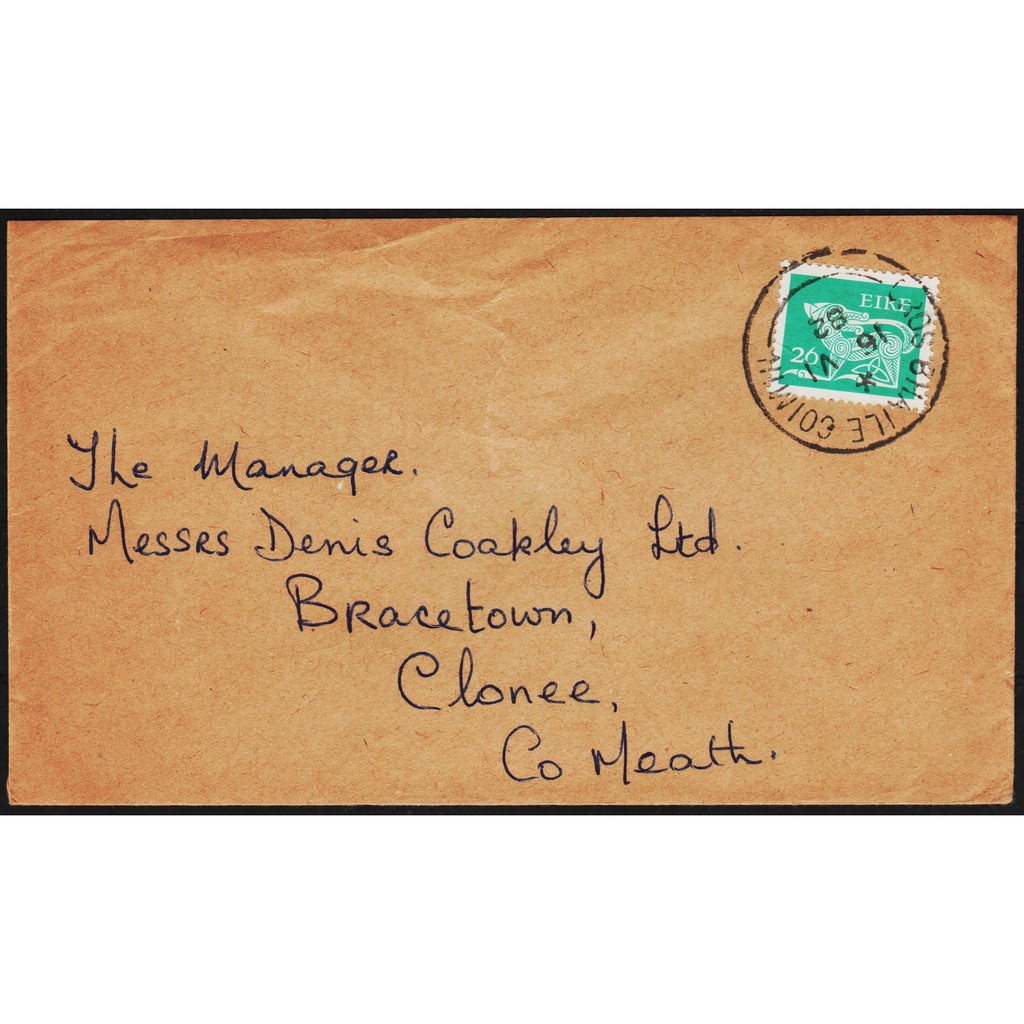 EIRE
26
CROS BHAILE COIMIN
*
16
VI
83
The Manager.
Messrs Denis Coakley Ltd.
Bracetown,
Clonee,
Co Meath.